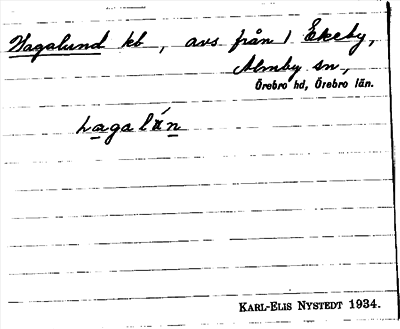 Hagalund kb, avs. från 1 Ekeby,
Almby sn,
Örebro hd, Örebro län.
hagalún
KARL-ELIS NYSTEDT 1934.